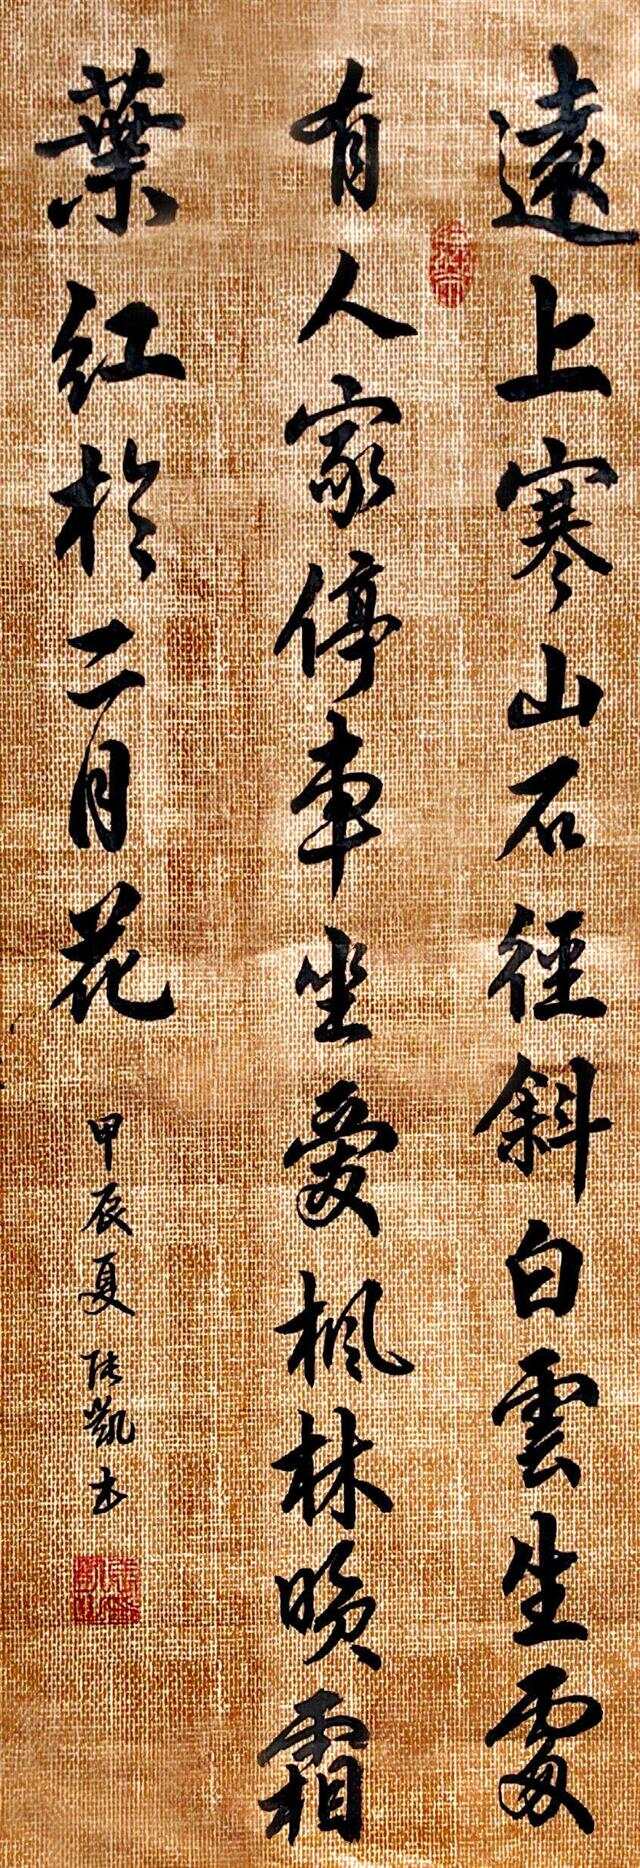 遠上寒山石徑斜白雲生處
有人家停車坐愛楓林晚霜
葉紅於二月花
甲辰夏張凱書